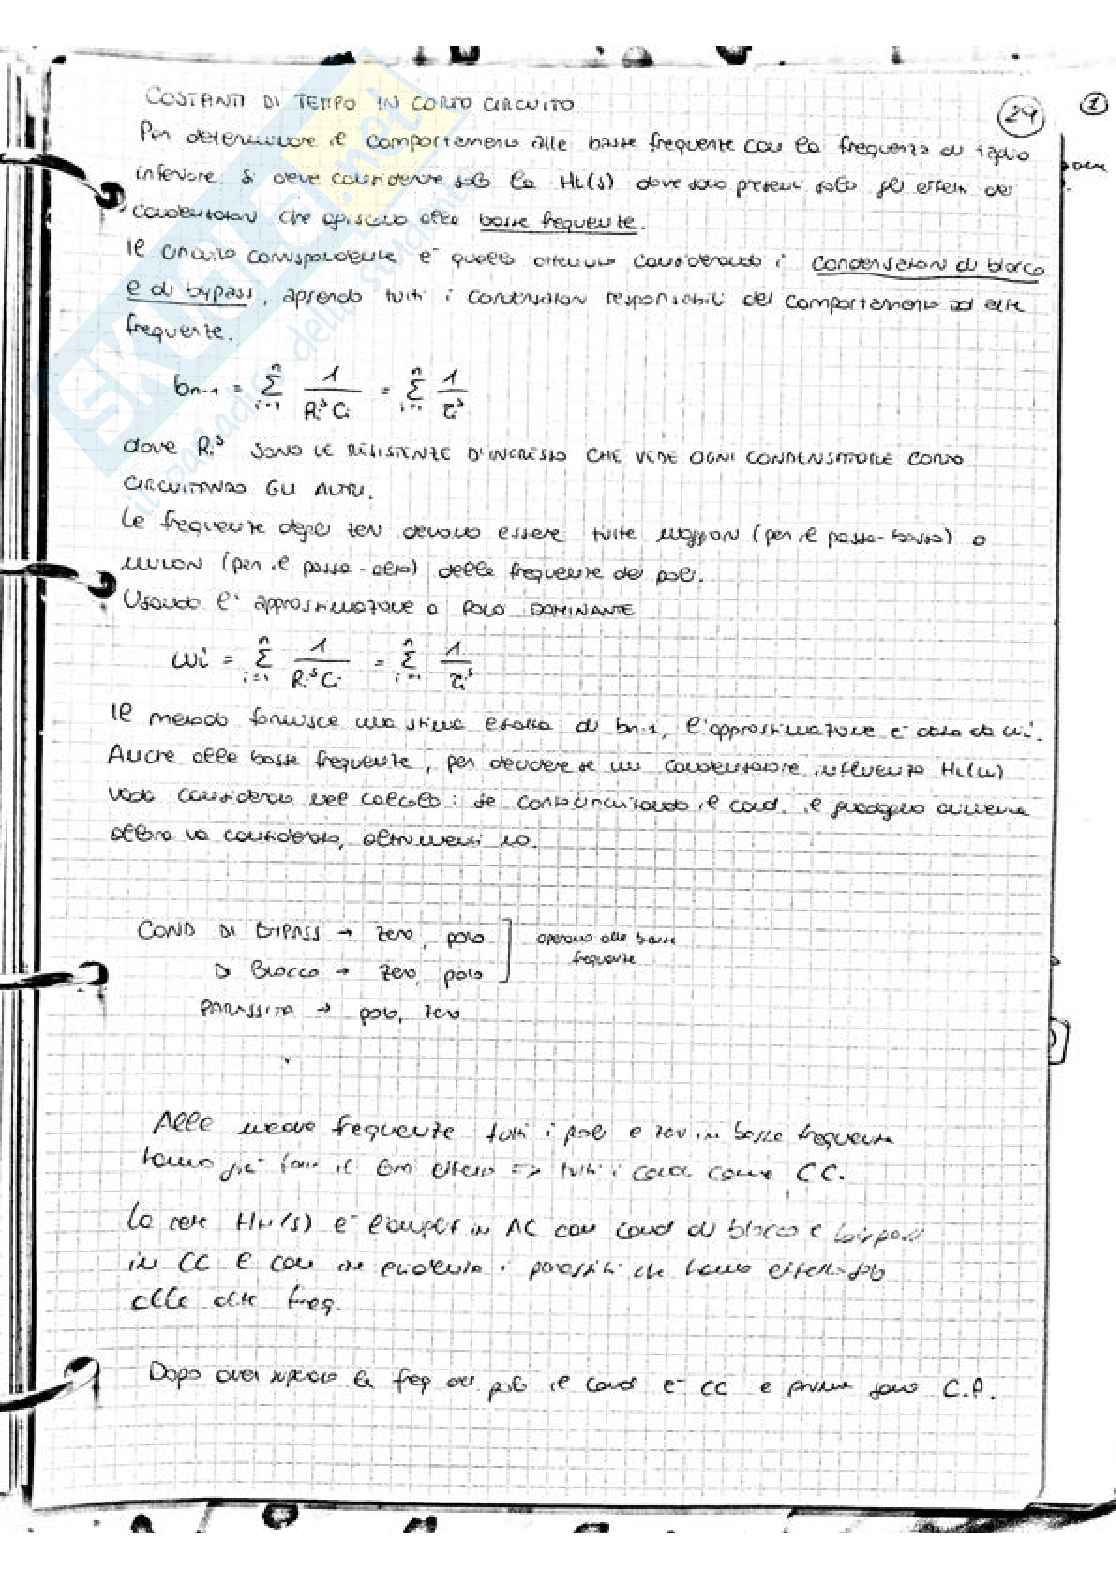 COSTANTI DI TEMPO IN CORTO CIRCUITO
24
1
Per determinare il comportamento alle basse frequenze con la frequenza di taglio
inferiore si deve considerare solo la HL(s) dove sono presenti solo gli effetti dei
condensatori che agiscono alle basse frequenze.
Il circuito corrispondente è quello ottenuto considerando i condensatori di blocco
e di bypass, aprendo tutti i condensatori responsabili del comportamento ad alte
frequenze.
bn-1 = Σ i=1 n 1/(Ri^s Ci) = Σ i=1 n 1/τi^s
dove Ri^s SONO LE RESISTENZE D'INGRESSO CHE VEDE OGNI CONDENSATORE CORTO
CIRCUITANDO GLI ALTRI.
Le frequenze degli zeri devono essere tutte maggiori (per il passa-basso) o
minori (per il passa-alto) delle frequenze dei poli.
Usando l'approssimazione a POLO DOMINANTE
ωi = Σ i=1 n 1/(Ri^s Ci) = Σ i=1 n 1/τi^s
Il metodo fornisce una stima esatta di bn-1, l'approssimazione è data da ωi.
Anche alle basse frequenze, per decidere se un condensatore influenza HL(s)
vada considerato nel calcolo: se cortocircuitando il cond. il guadagno aumenta
allora va considerato, altrimenti no.
COND DI BYPASS → zero, polo
operano alle basse
frequenze
DI BLOCCO → zero, polo
PARASSITA → polo, zero
Alle medie frequenze tutti i poli e zeri in basse frequenze
hanno già fatto il loro effetto => tutti i cond. come CC.
La rete HH(s) è l'ampl in AC con cond di blocco e bypass
in CC e con in evidenza i parassiti che hanno effetto solo
alle alte freq.
Dopo aver superato la freq del polo il cond è CC e prima sono C.A.